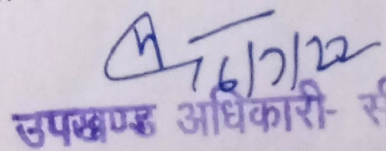 16/7/22
उपखण्ड अधिकारी-